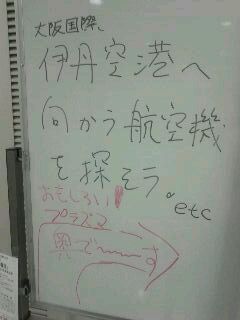 大阪国際、
伊丹空港へ
向かう航空機
を探そう。
etc
おもしろい
プラズマ
奥で〜〜す